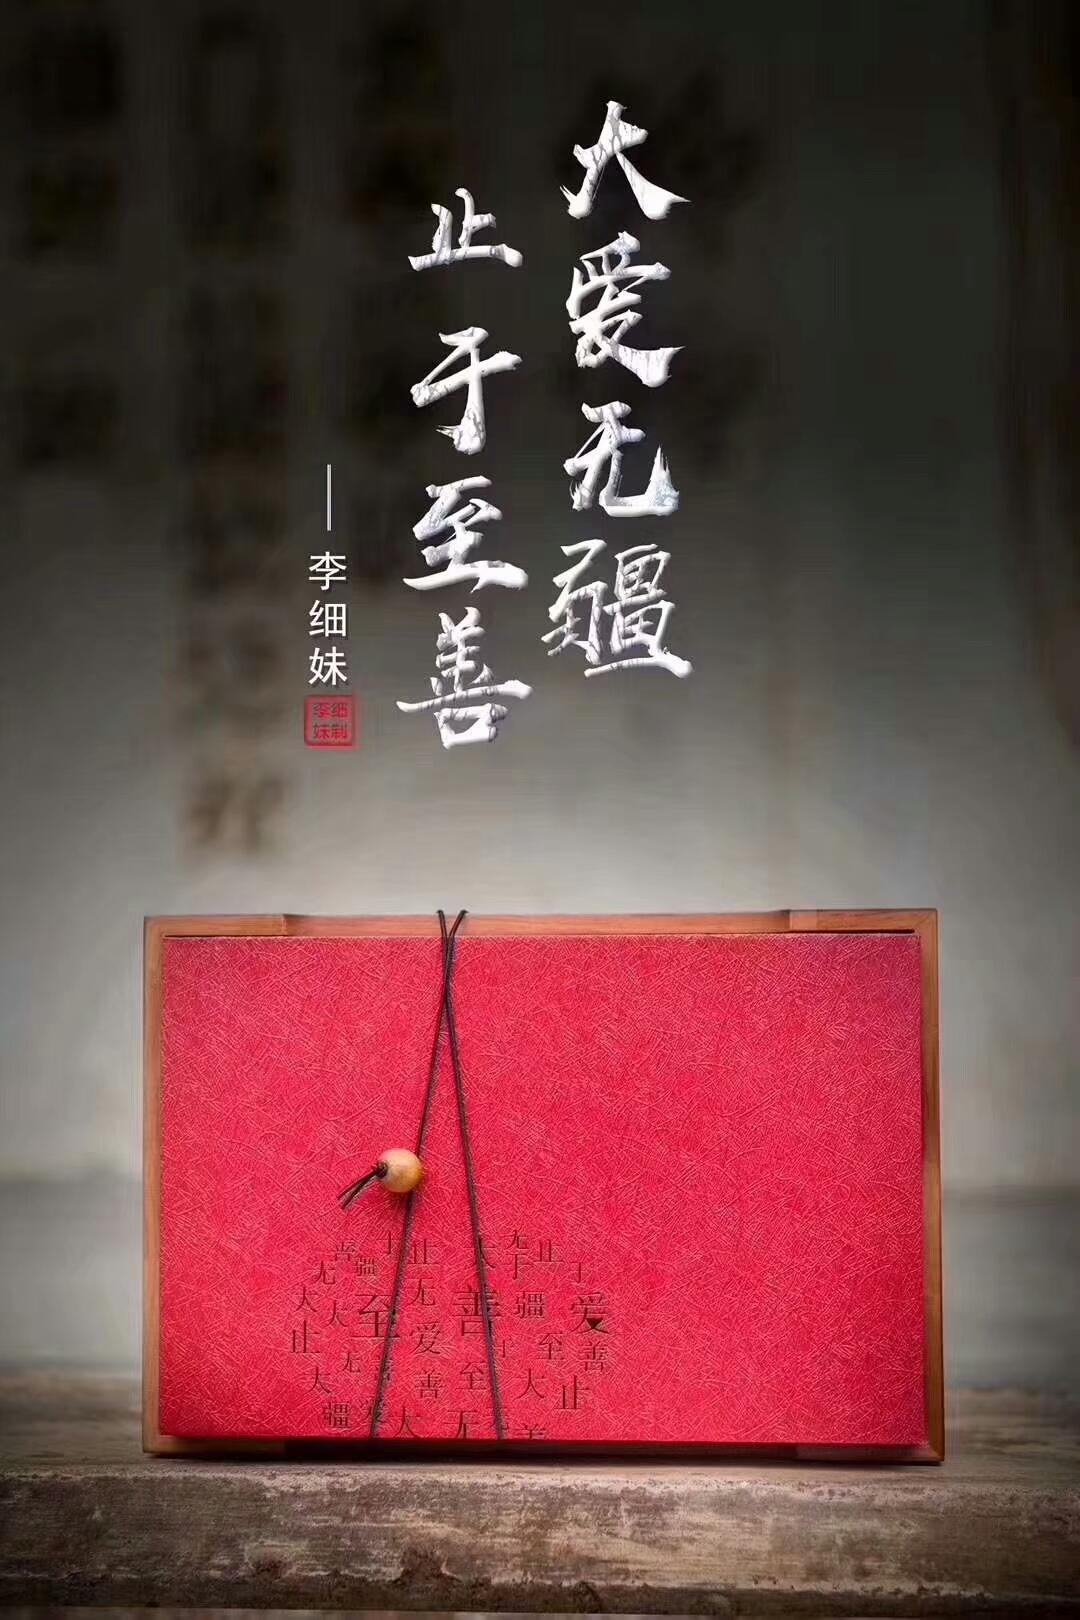 大爱无疆
止于至善
——李细妹
李细
妹制
善 于 止 大 无 止
无 疆 无 于 于
大 大 至 善 疆 爱
止 无 爱 于 至 善
大 善 善 至 大 止
疆 爱 大 无 无 善